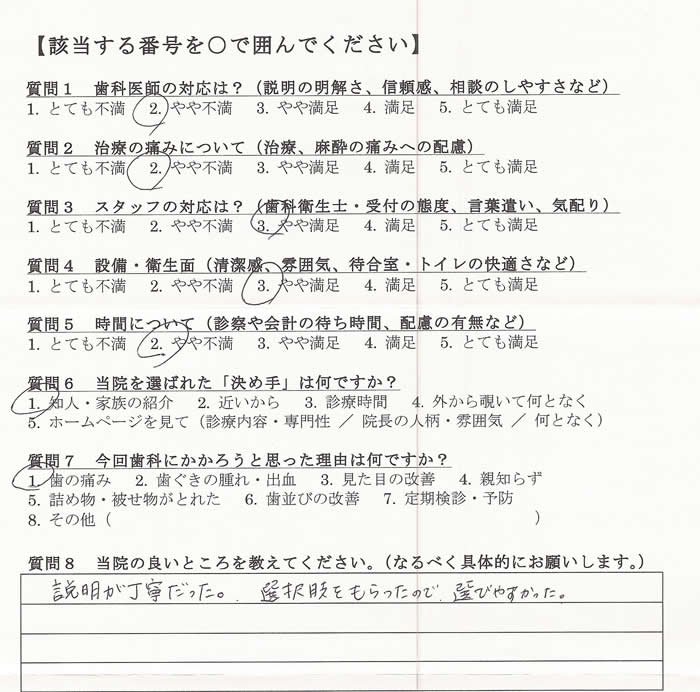 【該当する番号を○で囲んでください】
質問1　歯科医師の対応は？（説明の明解さ、信頼感、相談のしやすさなど）
1. とても不満　2. やや不満　3. やや満足　4. 満足　5. とても満足
質問2　治療の痛みについて（治療、麻酔の痛みへの配慮）
1. とても不満　2. やや不満　3. やや満足　4. 満足　5. とても満足
質問3　スタッフの対応は？（歯科衛生士・受付の態度、言葉遣い、気配り）
1. とても不満　2. やや不満　3. やや満足　4. 満足　5. とても満足
質問4　設備・衛生面（清潔感、雰囲気、待合室・トイレの快適さなど）
1. とても不満　2. やや不満　3. やや満足　4. 満足　5. とても満足
質問5　時間について（診察や会計の待ち時間、配慮の有無など）
1. とても不満　2. やや不満　3. やや満足　4. 満足　5. とても満足
質問6　当院を選ばれた「決め手」は何ですか？
1. 知人・家族の紹介　2. 近いから　3. 診療時間　4. 外から覗いて何となく
5. ホームページを見て（診療内容・専門性 ／ 院長の人柄・雰囲気 ／ 何となく）
質問7　今回歯科にかかろうと思った理由は何ですか？
1. 歯の痛み　2. 歯ぐきの腫れ・出血　3. 見た目の改善　4. 親知らず
5. 詰め物・被せ物がとれた　6. 歯並びの改善　7. 定期検診・予防
8. その他（　　　　　　　　　　）
質問8　当院の良いところを教えてください。（なるべく具体的にお願いします。）
説明が丁寧だった。選択肢をもらったので、選びやすかった。